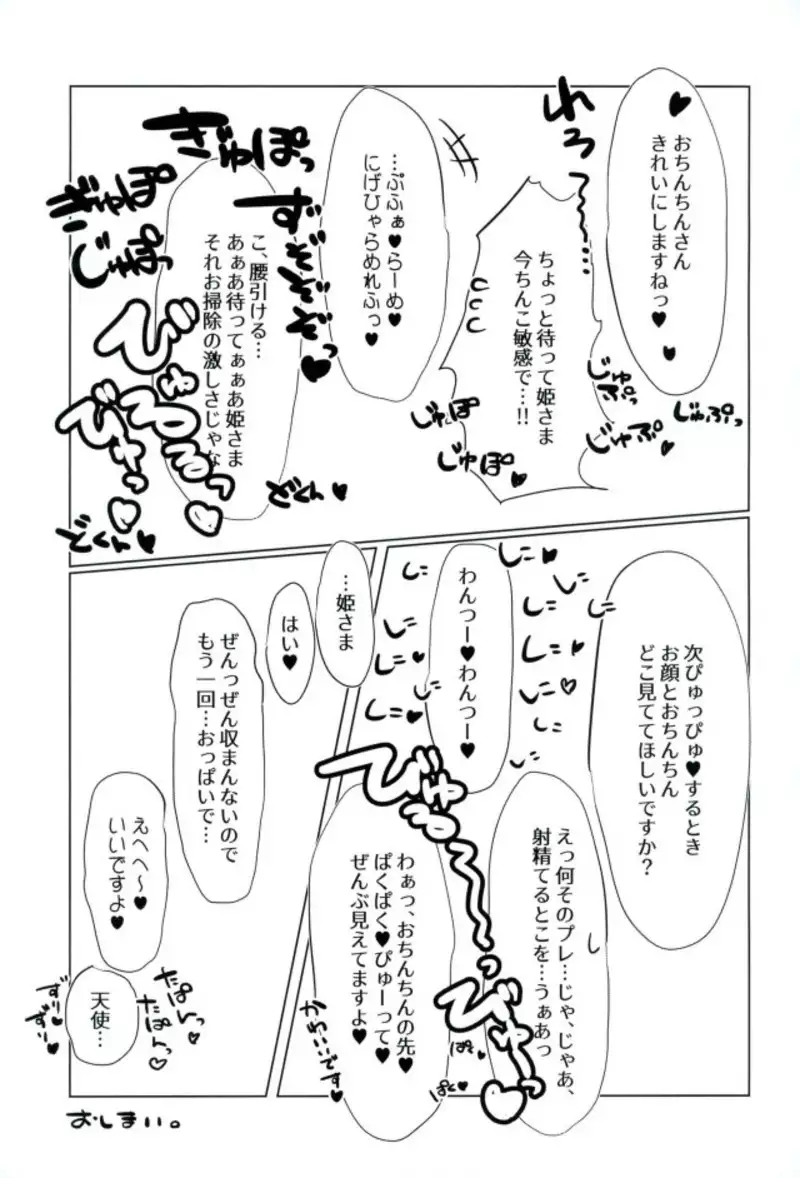 おちんちんさん
きれいにしますねっ♥
れろ〜〜…
ちょっと待って姫さま
今ちんこ敏感で…!!
じゅぷっ
じゅぷ♥
じゅぷっ
じゅぽ
じゅぽ♥
…ぷふぁ♥らーめ♥
にげひゃらめれふっ
ずぞぞぞっ♥
こ、腰引ける…
あぁあ待ってぁぁあ姫さま
それお掃除の激しさじゃな
ぎゅぽっ
ぎゅぽっ
じゅぽっ
びゅるるっ
びゅっ
どくん♥
どくん♥
次ぴゅっぴゅ♥するとき
お顔とおちんちん
どこ見ててほしいですか?
わんつー♥わんつー♥
しこ
しこ
しこ
しこ
しこ♥
しこ
しこ
しこ
しこ♥
えっ何そのプレ…じゃ、じゃあ、
射精てるとこを…うぁあっ
びゅる〜〜〜っ
びゅっ
わぁっ、おちんちんの先♥
ぱくぱく♥ぴゅーって♥
ぜんぶ見えてますよ♥
かわいいです♥
ぱく♥
ぱく♥
…姫さま
はい♥
ぜんっぜん収まんないので
もう一回…おっぱいで…
えへへ〜♥
いいですよ♥
たぱんっ
たぱんっ♥
天使…
ずり♥
ずり♥
おしまい。